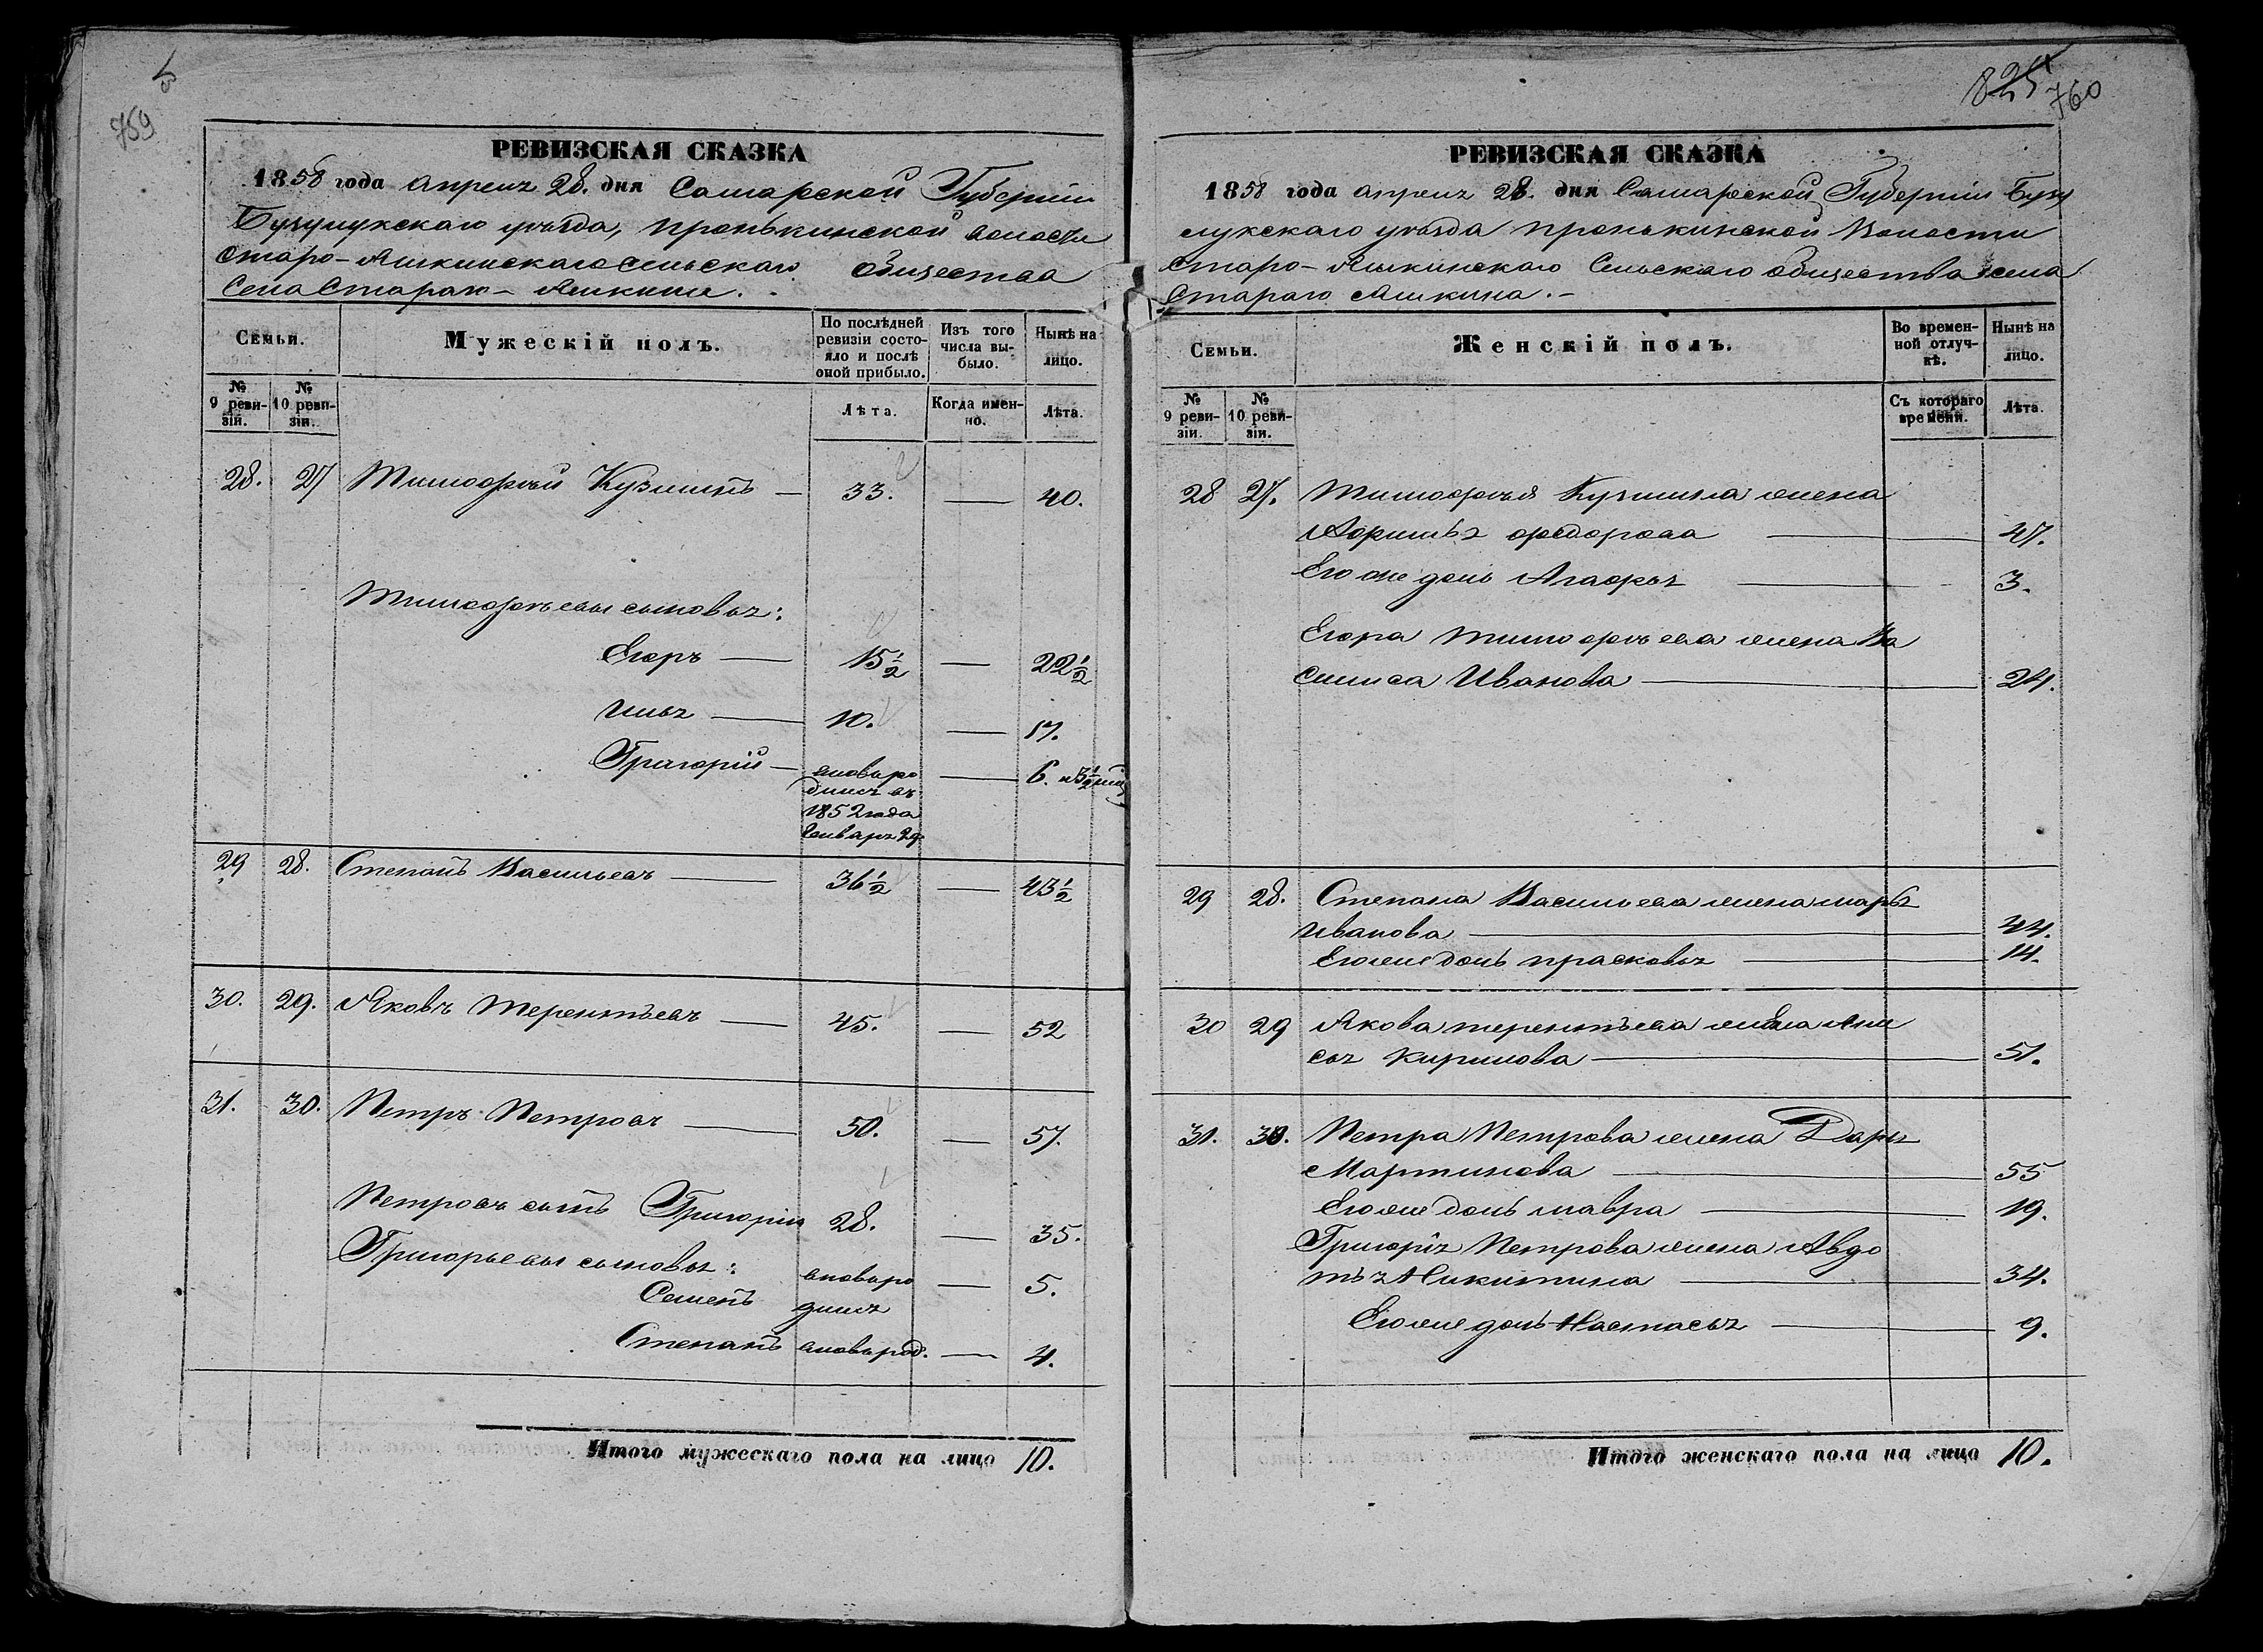 759
РЕВИЗСКАЯ СКАЗКА
1858 года апреля 28. дня Самарской Губернiи
Бузулукскаго уѣзда, пронькинской волости
Старо-Ашкинскаго сельскаго общества
Села Стараго-Ашкина.
Семьи.
Мужескiй полъ.
По послѣдней ревизiи состо-
яло и послѣ
оной прибыло.
Изъ того
числа вы-
было.
Нынѣ на
лицо.
№
9 реви-
зiи.
№
10 реви-
зiи.
Лѣта.
Когда имен-
но.
Лѣта.
28. 27 Тимофей Кузминъ — 33. — 40.
Тимофѣевы сыновья:
Егоръ — 15 1/2 — 22 1/2
Илья — 10. — 17.
Григорiй — вновьро — 6. и 3 1/2
дился въ
1852 года
Января 29
29 28. Степанъ Васильевъ — 36 1/2 — 43 1/2
30. 29. Яковъ Терентьевъ — 45. — 52
31. 30. Петръ Петровъ — 50. — 57.
Петровъ сынъ Григорiй 28. — 35.
Григорьевы сыновья:
Семенъ вновьро — 5.
дился
Степанъ вновьрод. — 4.
Итого мужескаго пола на лицо 10.
825 760
РЕВИЗСКАЯ СКАЗКА
1858 года апреля 28. дня Самарской Губернiи Бузу
лукскаго уѣзда пронькинской Волости
Старо-Ашкинскаго Сельскаго общества села
Стараго Ашкина.—
Семьи.
Женскiй полъ.
Во времен-
ной отлуч-
кѣ.
Нынѣ на
лицо.
№
9 реви-
зiи.
№
10 реви-
зiи.
Съ котораго
времени.
Лѣта.
28 27. Тимофея Кузмина жена
федорова — 47.
Его же дочь Агафья — 3.
Егора Тимофѣева жена Ва
силиса Иванова — 24.
29 28. Степана Васильева жена марья
Иванова — 44.
Его же дочь прасковья — 14.
30 29 Якова терентьева жена Ани
сья Кирилова — 51.
31. 30. Петра Петрова жена Дарья
Мартинова — 55
Его же дочь мавра — 19.
Григорiя Петрова жена Авдо
тья Никитина — 34.
Его же дочь Настасья — 9.
Итого женскаго пола на лицо 10.